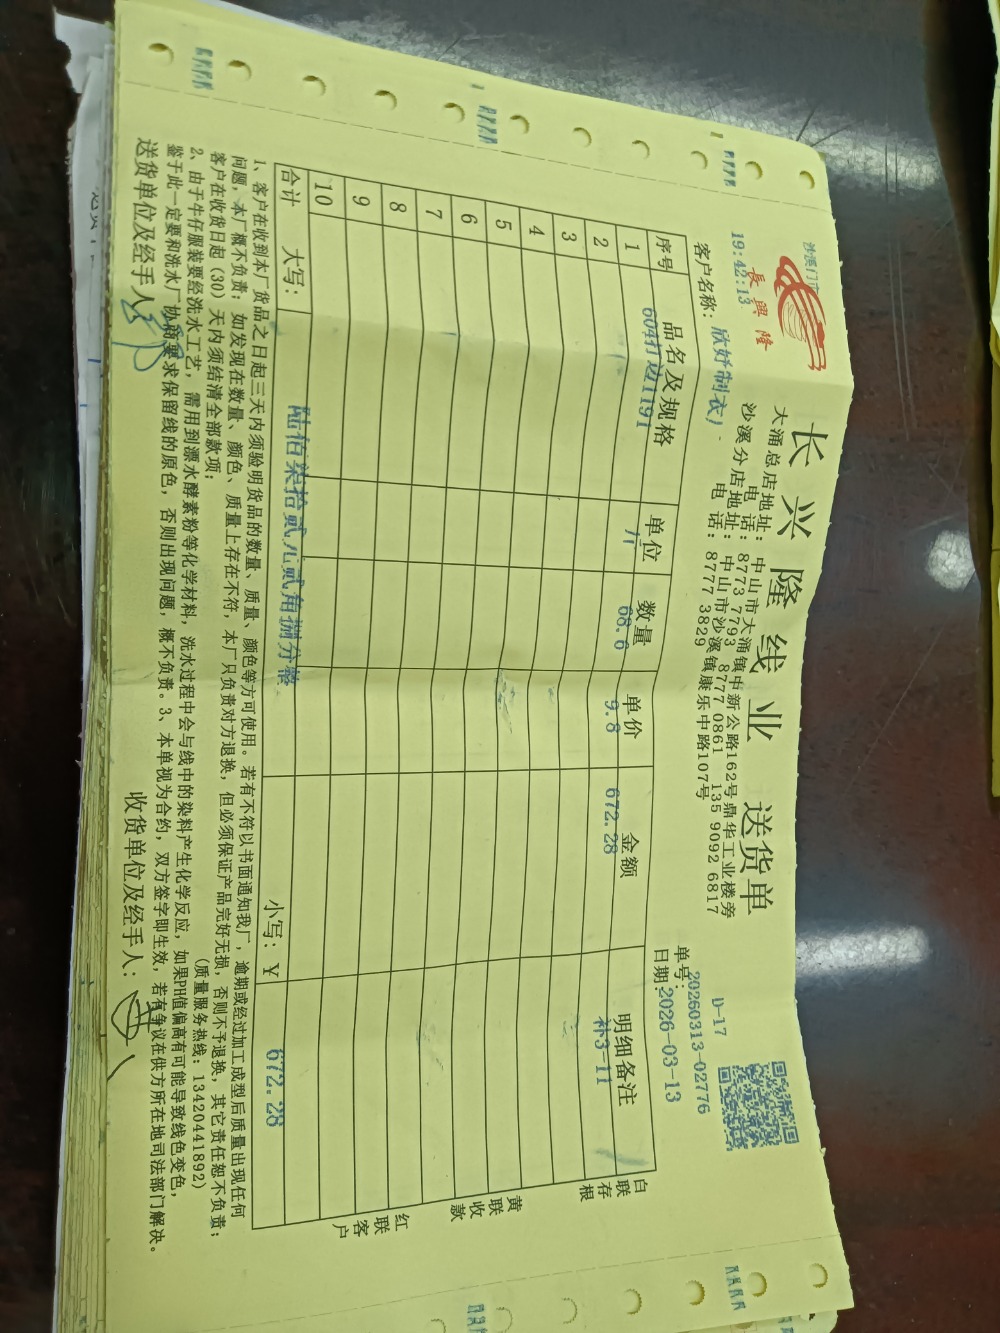 沙溪门市
長興隆
19:42:13
长兴隆线业 送货单
大涌总店地址：中山市大涌镇中新公路162号鼎华工业楼旁
电话：8773 7793 8777 0861 135 9092 6817
沙溪分店地址：中山市沙溪镇康乐中路107号
电话：8777 3829
D-17
单号：20260313-02776
客户名称：欣妤制衣
日期：2026-03-13
序号 品名及规格 单位 数量 单价 金额 明细备注
1 604打边1191 斤 68.6 9.8 672.28 补3-11
2
3
4
5
6
7
8
9
10
合计 大写：陆佰柒拾贰元贰角捌分整 小写：¥ 672.28
白联存根
黄联收款
红联客户
1、客户在收到本厂货品之日起三天内须验明货品的数量、质量、颜色等方可使用。若有不符以书面通知我厂，逾期或经过加工成型后质量出现任何
问题，本厂概不负责；如发现在数量、颜色、质量上存在不符，本厂只负责对方退换，但必须保证产品完好无损，否则不予退换，其它责任恕不负责；
客户在收货日起（30）天内须结清全部款项；（质量服务热线：13420441892）
2、由于牛仔服装要经洗水工艺，需用到漂水酵素粉等化学材料，洗水过程中会与线中的染料产生化学反应，如果PH值偏高有可能导致线色变色，
鉴于此一定要和洗水厂协商要求保留线的原色，否则出现问题，概不负责。3、本单视为合约，双方签字即生效，若有争议在供方所在地司法部门解决。
送货单位及经手人：
收货单位及经手人：